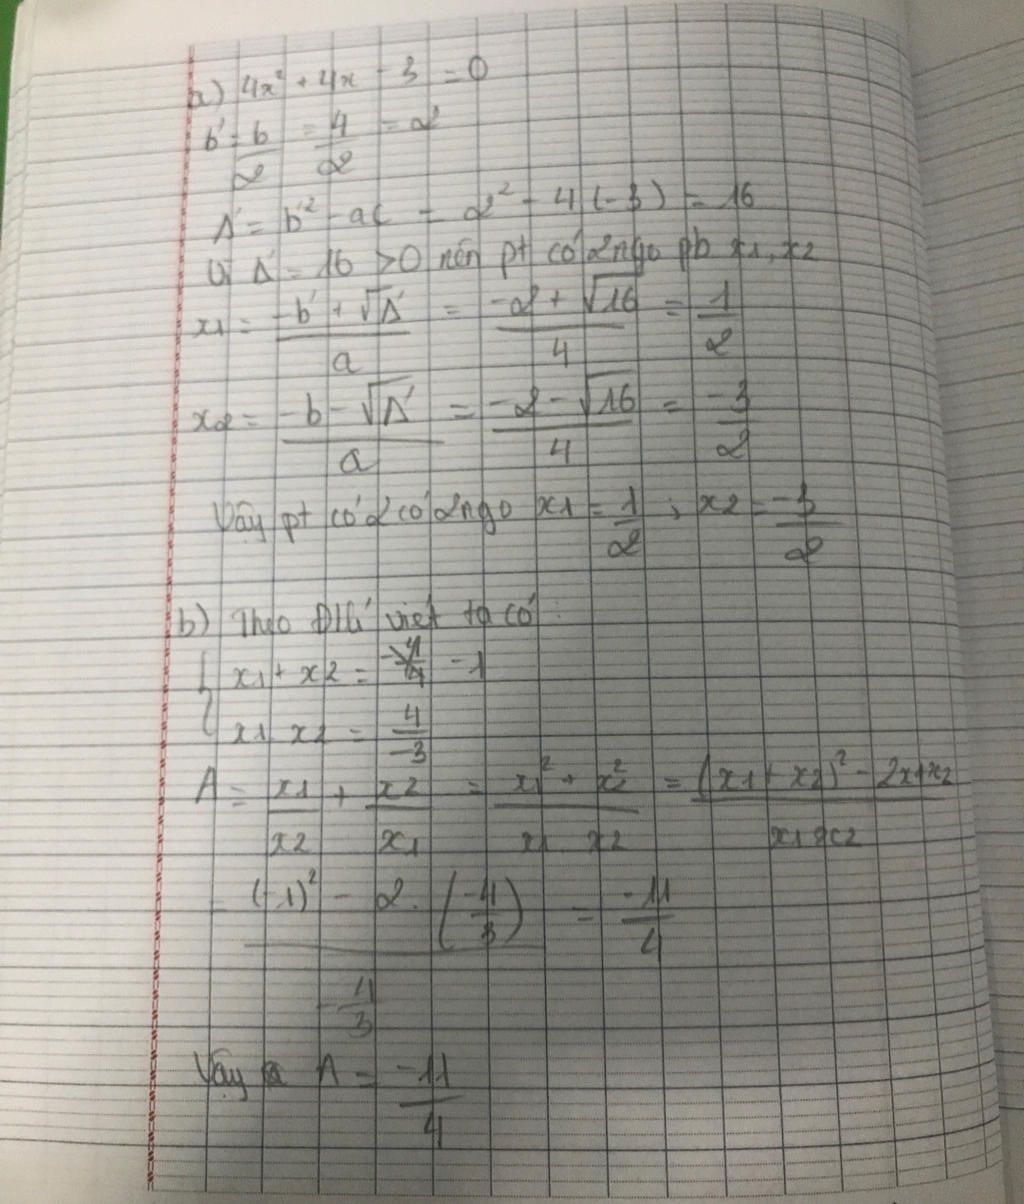 a) 4x² + 4x - 3 = 0
b' = b/2 = 4/2 = 2
Δ' = b'² - ac = 2² - 4(-3) = 16
Vì Δ' = 16 > 0 nên pt có 2 ngo pb x1, x2
x1 = (-b' + √Δ')/a = (-2 + √16)/4 = 1/2
x2 = (-b - √Δ')/a = (-2 - √16)/4 = -3/2
Vậy pt có 2 có 2 ngo x1 = 1/2 ; x2 = -3/2
b) Theo Đlí viet ta có :
{ x1 + x2 = -4/4 - 1
x1 x2 = 4/-3
A = x1/x2 + x2/x1 = (x1² + x2²)/(x1 . x2) = ((x1 + x2)² - 2x1x2)/(x1 x2)
= ((-1)² - 2 . (-4/3))/(-4/3) = -11/4
Vậy A = -11/4